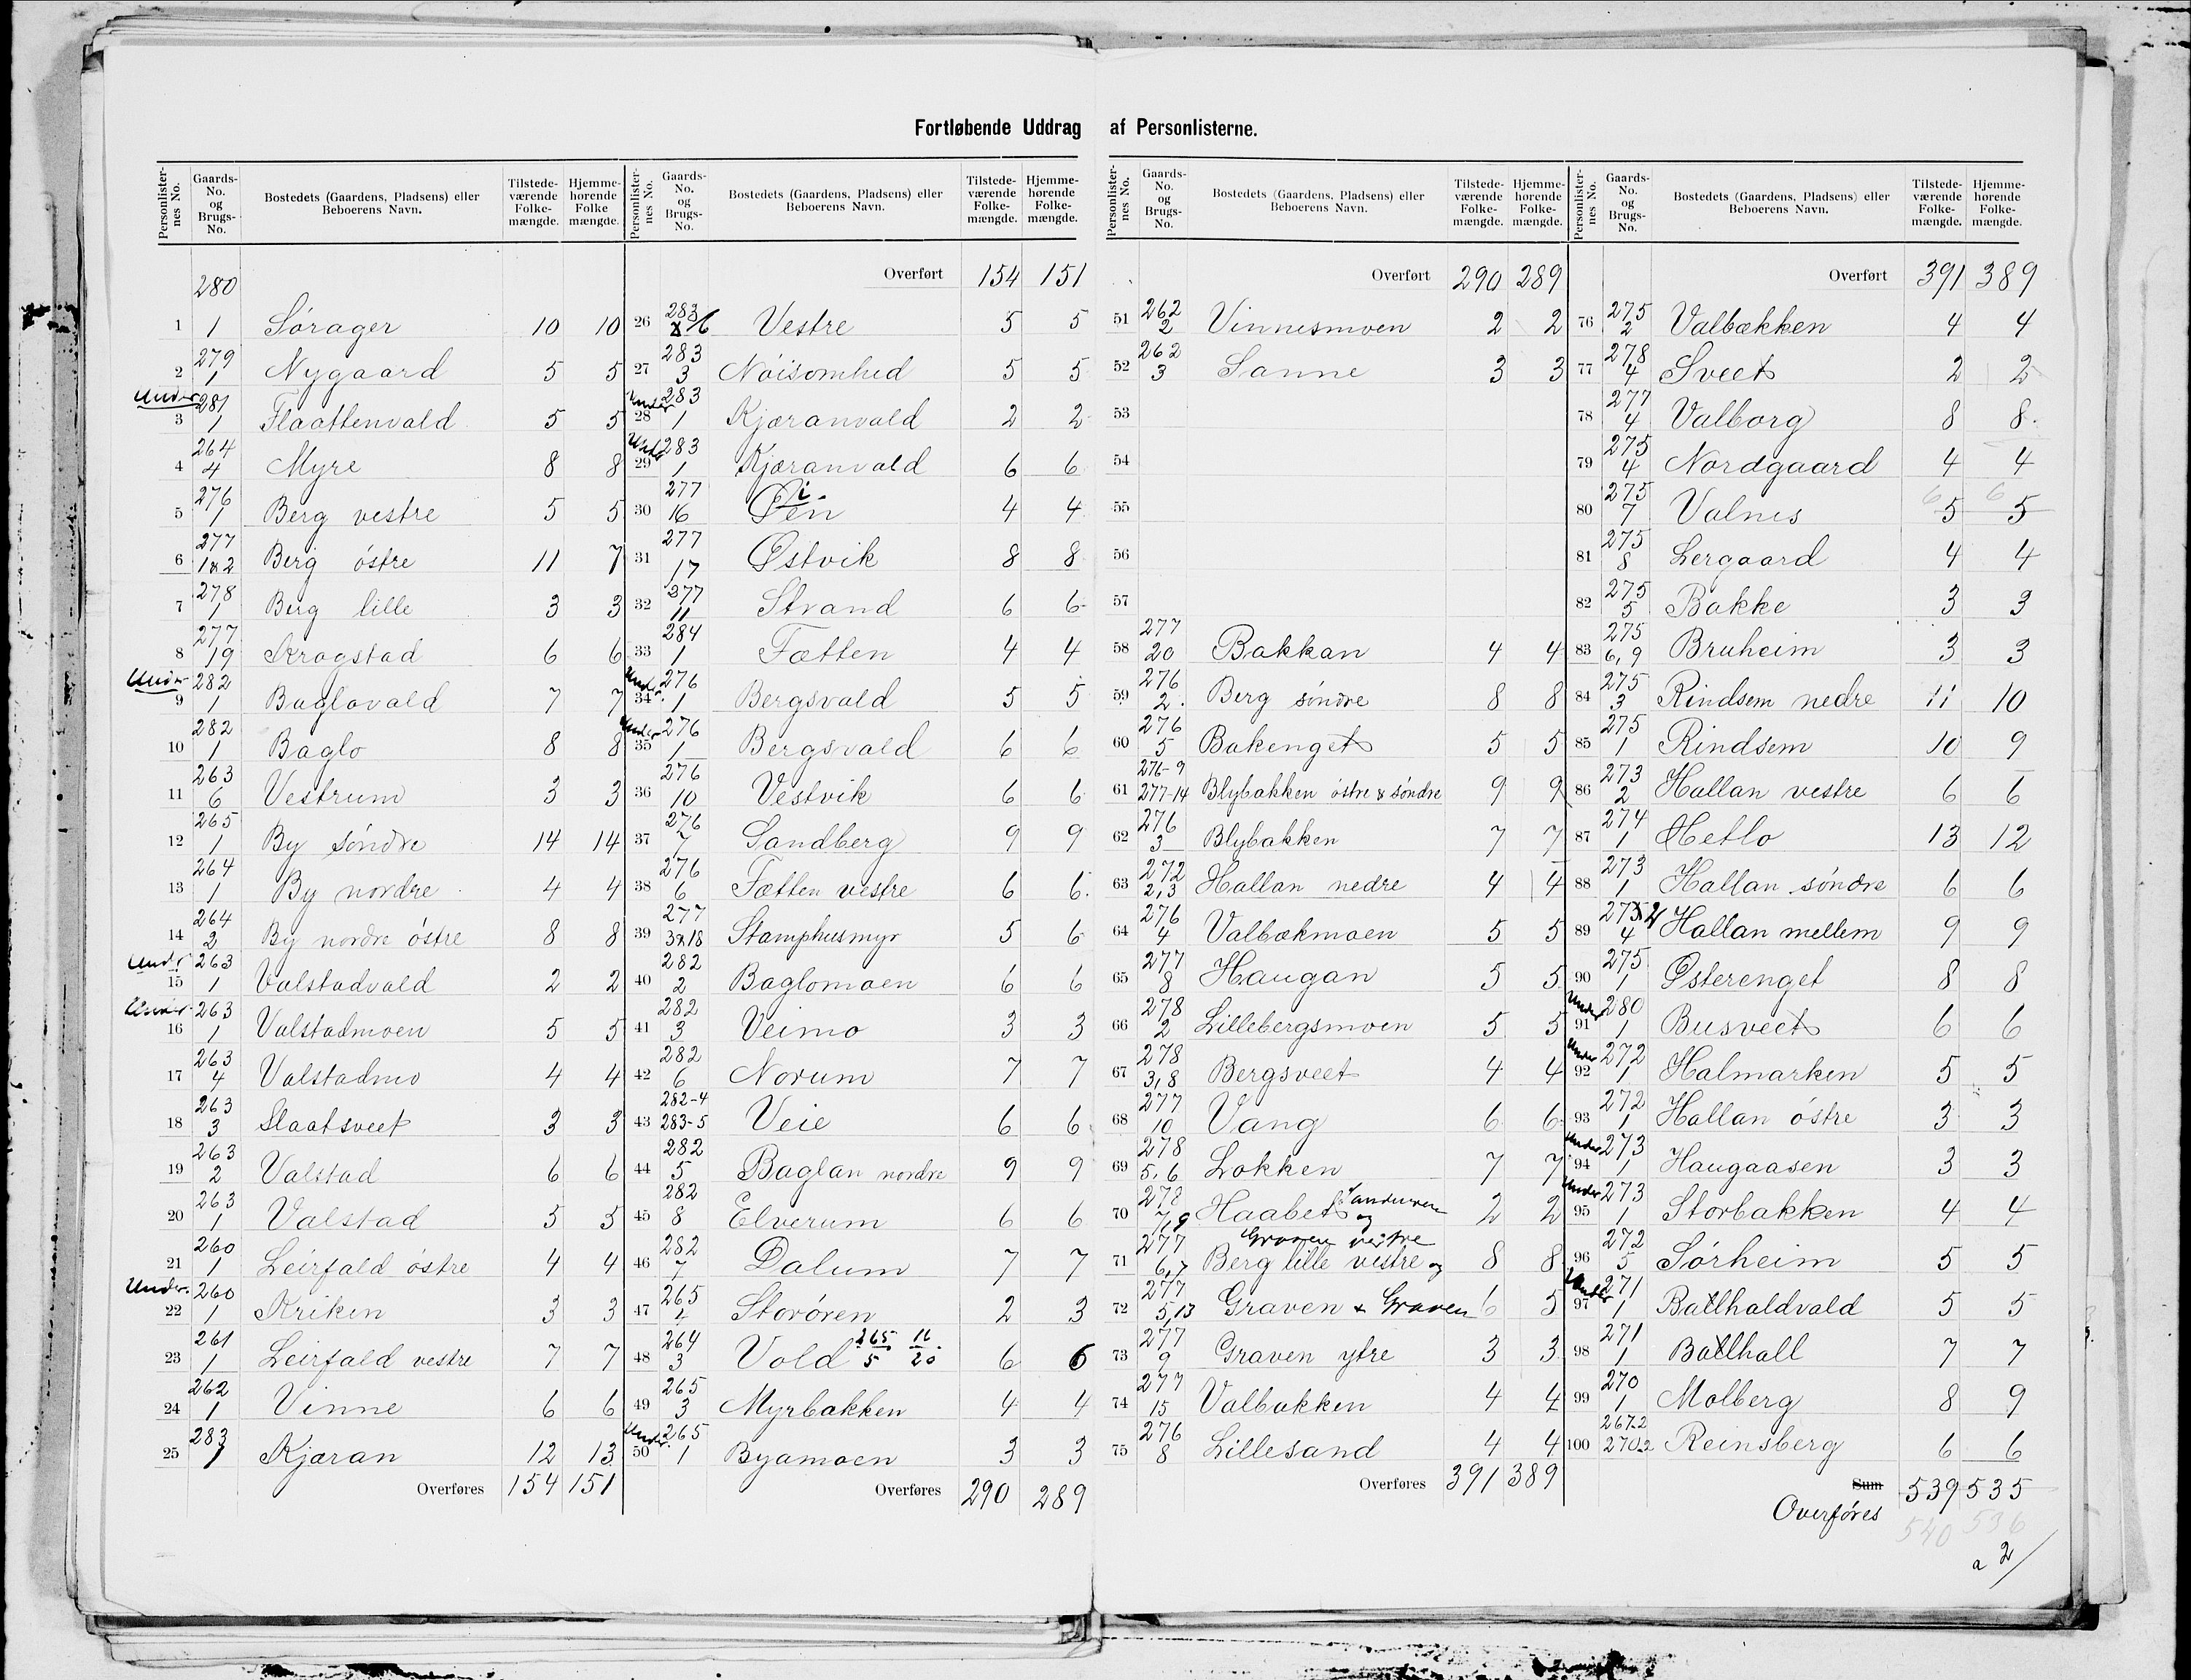 Fortløbende Uddrag af Personlisterne.
Personlister-nes No. Gaards-No. og Brugs-No. Bostedets (Gaardens, Pladsens) eller Beboerens Navn. Tilstede-værende Folke-mængde. Hjemme-hørende Folke mængde.
280
1 1 Sørager 10 10
2 279 1 Nygaard 5 5
Under 3 281 1 Flaattenvald 5 5
4 264 4 Myre 8 8
5 276 1 Berg vestre 5 5
6 277 1&2 Berg østre 11 7
7 278 1 Berg lille 3 3
8 277 19 Kragstad 6 6
Under 9 282 1 Baglovald 7 7
10 282 1 Baglo 8 8
11 263 6 Vestrum 3 3
12 265 1 By søndre 14 14
13 264 1 By nordre 4 4
14 264 2 By nordre østre 8 8
Under 15 263 1 Valstadvald 2 2
Under 16 263 1 Valstadmoen 5 5
17 263 4 Valstadmo 4 4
18 263 3 Slaatsveet 3 3
19 263 2 Valstad 6 6
20 263 1 Valstad 5 5
21 260 1 Leirfald østre 4 4
Under 22 260 1 Kriken 3 3
23 261 1 Leirfald vestre 7 7
24 262 1 Vinne 6 6
25 283 1 Kjæran 12 13
Overføres 154 151
Personlister-nes No. Gaards-No. og Brugs-No. Bostedets (Gaardens, Pladsens) eller Beboerens Navn. Tilstede-værende Folke-mængde. Hjemme-hørende Folke-mængde.
Overført 154 151
26 283 6 Vestre 5 5
27 283 3 Nøisomhed 5 5
Under 28 283 1 Kjæranvald 2 2
Under 29 283 1 Kjæranvald 6 6
30 277 16 Øien 4 4
31 277 17 Østvik 8 8
32 277 11 Strand 6 6
33 284 1 Fætten 4 4
Under 34 276 1 Bergsvald 5 5
Under 35 276 1 Bergsvald 6 6
36 276 10 Vestvik 6 6
37 276 7 Sandberg 9 9
38 276 6 Fætten vestre 6 6
39 277 3&18 Stamphusmyr 5 6
40 282 2 Baglomoen 6 6
41 282 3 Veimo 3 3
42 282 6 Norum 7 7
43 282-4 283-5 Veie 6 6
44 282 5 Baglan nordre 9 9
45 282 8 Elverum 6 6
46 282 7 Dalum 7 7
47 265 4 Storøren 2 3
48 264 3 Vold 265 5 11 20 6 6
49 265 3 Myrbakken 4 4
Under 50 265 1 Byamoen 3 3
Overføres 290 289
Personlister-nes No. Gaards-No. og Brugs-No. Bostedets (Gaardens, Pladsens) eller Beboerens Navn. Tilstede-værende Folke-mængde. Hjemme-hørende Folke-mængde.
Overført 290 289
51 262 2 Vinnesmoen 2 2
52 262 3 Sanne 3 3
53
54
55
56
57
58 277 20 Bakkan 4 4
59 276 2 Berg søndre 8 8
60 276 5 Bakenget 5 5
61 276-9 277-14 Blybakken østre & søndre 9 9
62 276 3 Blybakken 7 7
63 272 2,3 Hallan nedre 4 4
64 276 4 Valbækmoen 5 5
65 277 8 Haugan 5 5
66 278 2 Lillebergsmoen 5 5
67 278 3,8 Bergsveet 4 4
68 277 10 Vang 6 6
69 278 5,6 Løkken 7 7
70 278 7,9 Haabet og 2 2
Graven vestre
71 277 6,7 Berg lille vestre og 8 8
72 277 5,13 Graven & Graven 6 5
73 277 9 Graven ytre 3 3
74 277 15 Valbakken 4 4
75 276 8 Lillesand 4 4
Overføres 391 389
Personlister-nes No. Gaards-No. og Brugs-No. Bostedets (Gaardens, Pladsens) eller Beboerens Navn. Tilstede-værende Folke-mængde. Hjemme-hørende Folke-mængde.
Overført 391 389
76 275 2 Valbækken 4 4
77 278 4 Sveet 2 2
78 277 4 Valborg 8 8
79 275 4 Nordgaard 4 4
80 275 7 Valnes 6 5 6 5
81 275 8 Lergaard 4 4
82 275 5 Bakke 3 3
83 275 6,9 Bruheim 3 3
84 275 3 Rindsem nedre 11 10
85 275 1 Rindsem 10 9
86 273 2 Hallan vestre 6 6
87 274 1 Hetlo 13 12
88 273 1 Hallan søndre 6 6
89 272 4 Hallan mellem 9 9
90 275 1 Østerenget 8 8
Under 91 280 1 Busveet 6 6
Under 92 272 1 Halmarken 5 5
93 272 1 Hallan østre 3 3
Under 94 273 1 Haugaasen 3 3
Under 95 273 1 Storbakken 4 4
96 272 5 Sørheim 5 5
Under 97 271 1 Balhaldvald 5 5
98 271 1 Balhall 7 7
99 270 1 Molberg 8 9
100 267.2 270.2 Reinsberg 6 6
Sum 539 535
Overføres
540 536
a 2/